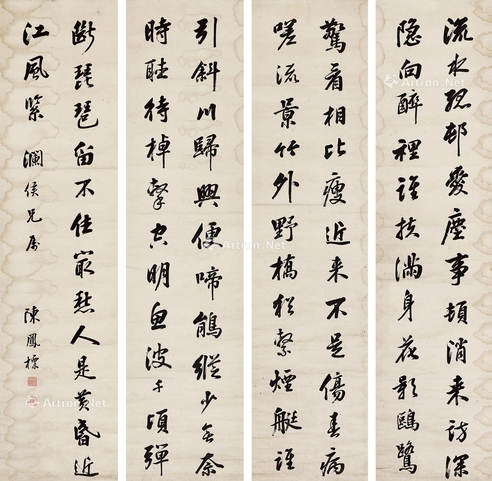 流水孤邨愛塵事頓消来訪深
隐向醉裡誰扶滿身花影鷗鷺
驚看相比瘦近来不是傷春病
嗟流景竹外野橋猶繫煙艇誰
引斜川歸興便啼鵑縱少無奈
時聴待棹擊空明魚波千頃彈
斷琵琶留不住最愁人是黄昏近
江風緊 瀾侯兄屬 陳鳳標
Artron.Net
Artron.Net
Artron.Net
Artron.Net
Artron.Net